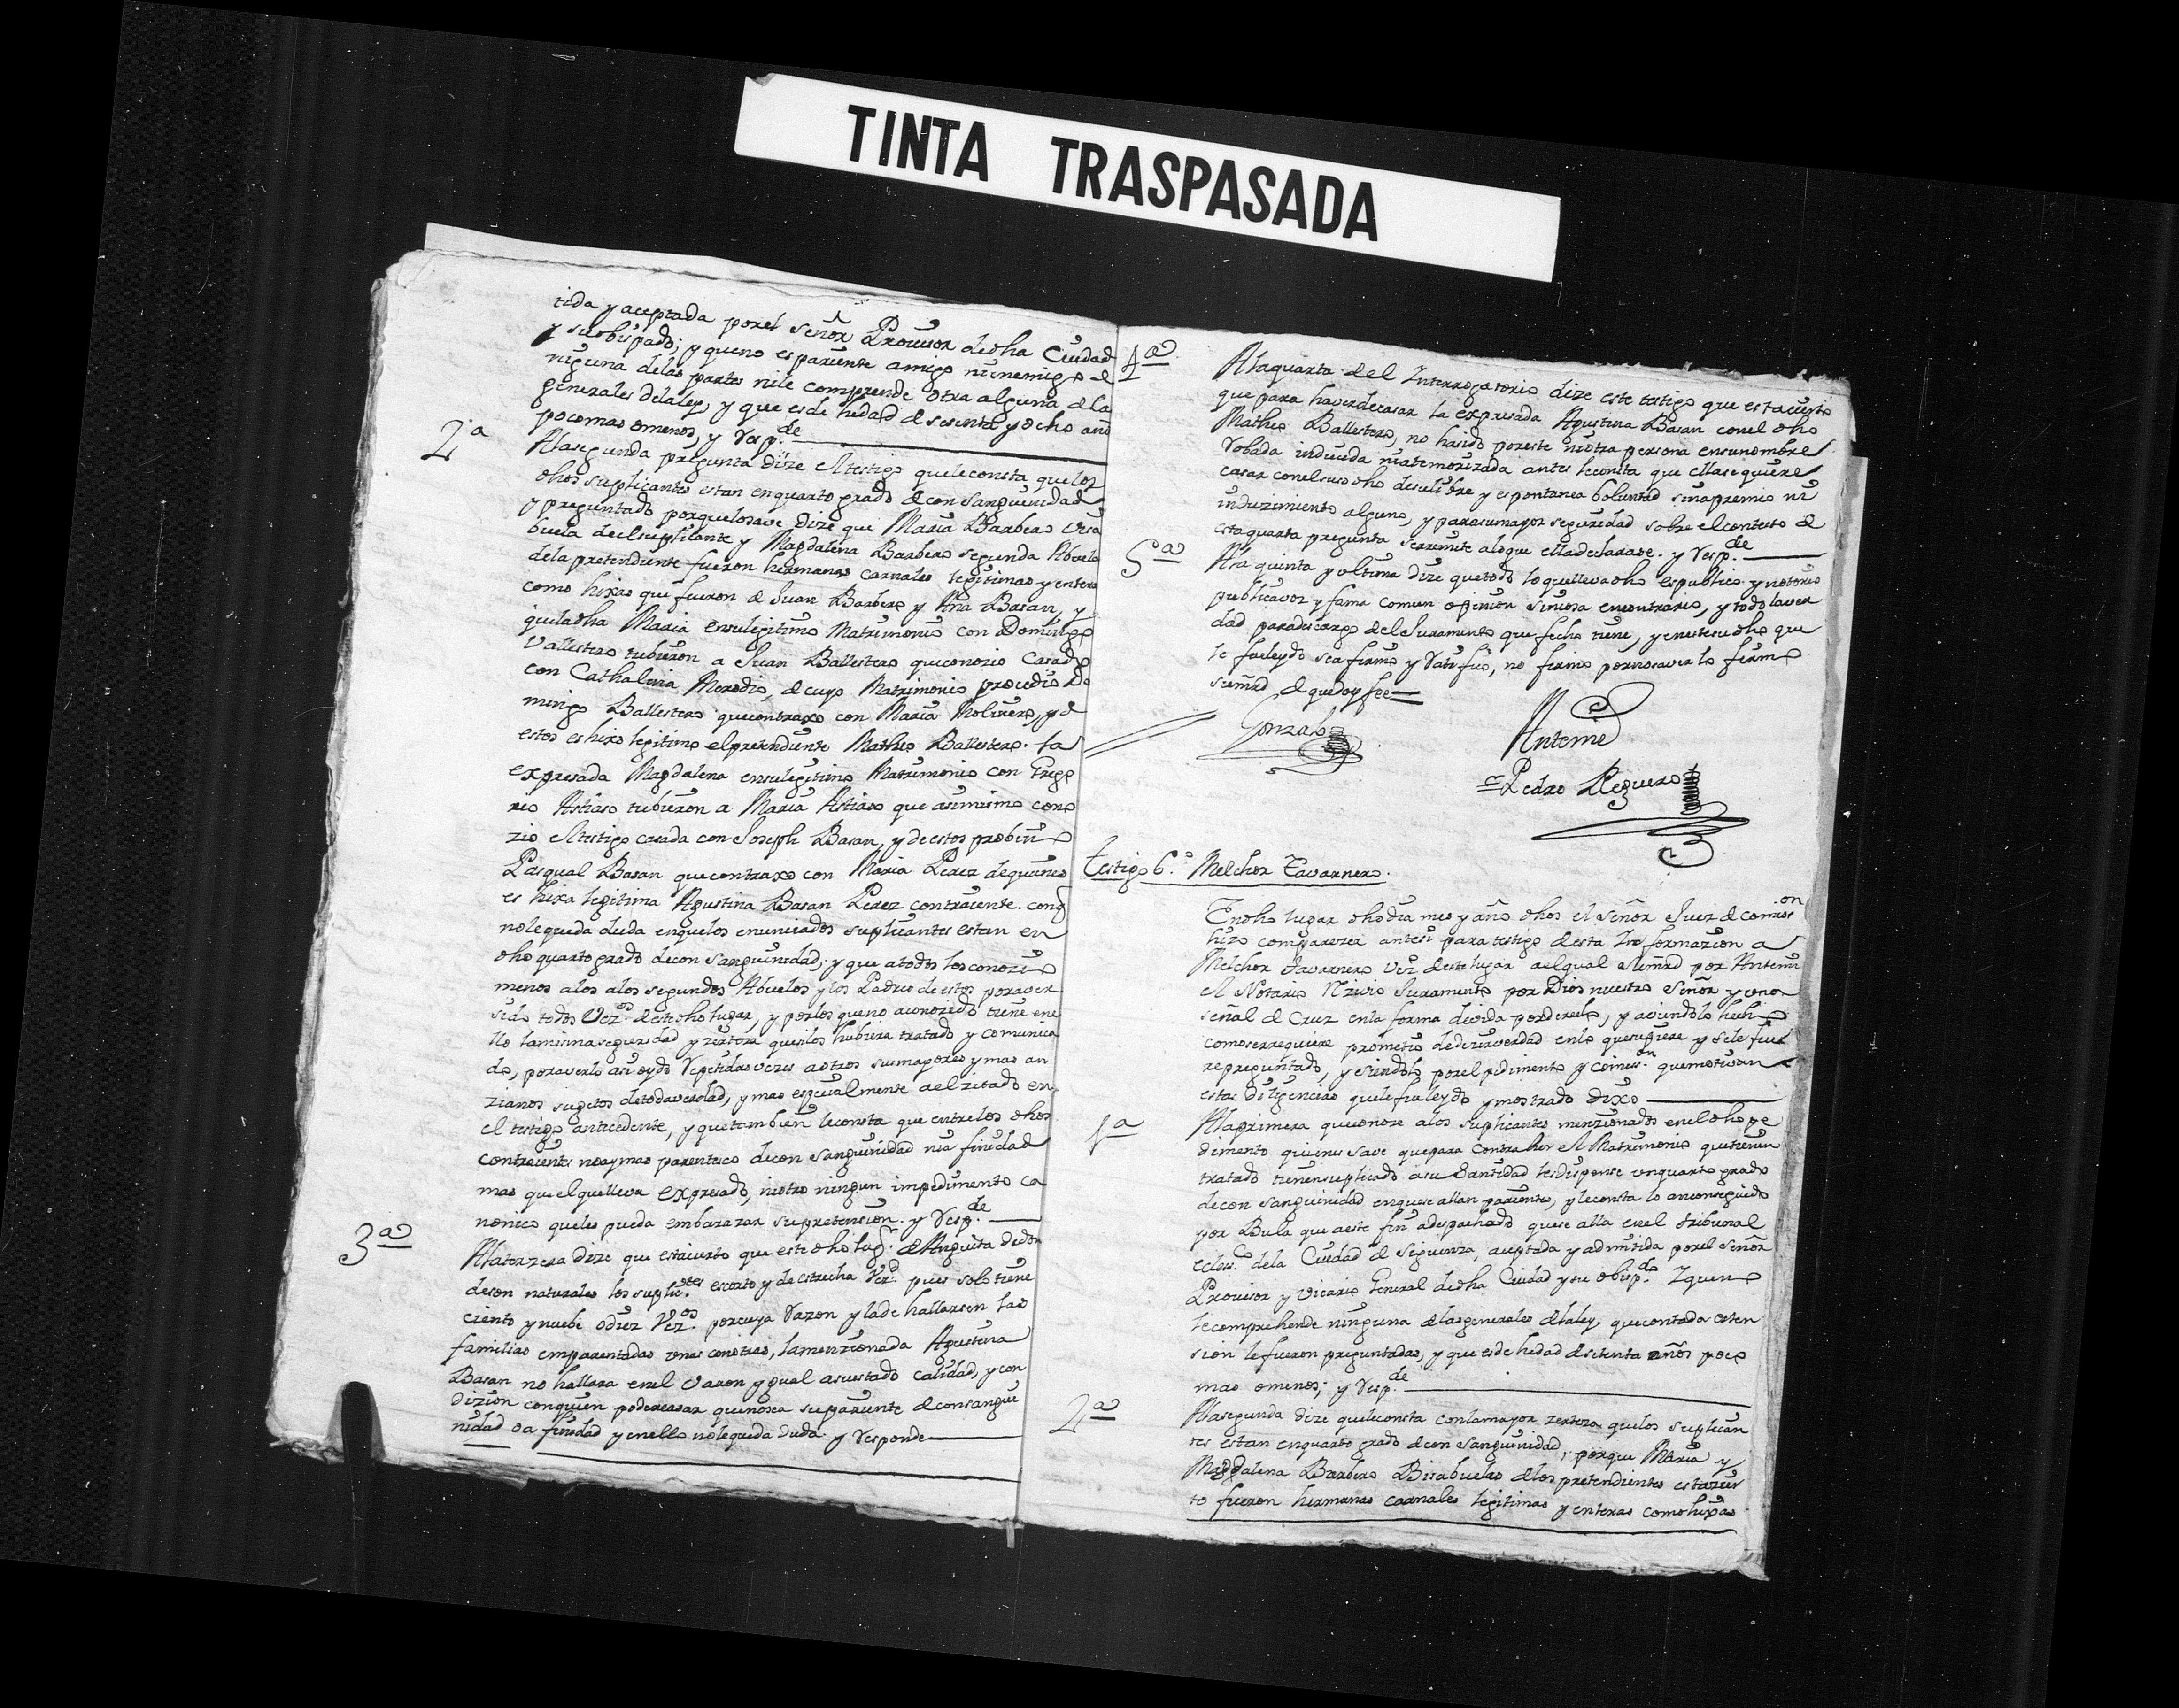 TINTA TRASPASADA
tida y aceptada por el Señor Provisor de dha Ciudad
y su obispado; y que no es pariente amigo ni nemigo de
ninguna de las partes ni le comprende otra alguna de la
generales de la ley, y que es de hedad de sesenta y ocho año
poco mas o menos, y Resp.de
2a
A la segunda pregunta dize el testigo que le consta que los
dhos suplicantes estan en quarto grado de con sanguinidad
y preguntado por que lo save dize que Maria Barbero visa
buela del suplicante y Magdalena Barbero segunda Abuela
de la pretendiente fueron hermanas carnales legitimas y enteras
como hixas que fueron de Juan Barbero y Ana Basan, y
que la dha Maria en su legitimo Matrimonio con Domingo
Vallestero tubieron a Juan Ballestero que conozio Casado
con Cathalina, de cuyo Matrimonio procedio Do
mingo Ballestero que contraxo con Maria Molinero, y de
estos es hixo legitimo el pretendiente Matheo Ballestero. La
expresada Magdalena en su legitimo Matrimonio con Grego
rio tubieron a Maria que asimismo cono
zio el testigo casada con Joseph Basan, y de estos probino
Pasqual Basan que contraxo con Maria Perez de quienes
es hixa legitima Agustina Basan Perez contraiente. conq
no le queda duda en que los enunciados suplicantes estan en
dho quarto grado de con sanguinidad; y que a todos los conozio
menos a los a los segundos Abuelos y los Padres de estos por aver
sido todos Vez.os de este dho lugar, y por los que no a conozido tiene en e
llo la misma seguridad y zerteza que si los hubiera tratado y comunica
do, por averlo asi oydo Repetidas vezes a otros sus mayores y mas an
zianos sugetos de toda verdad, y mas espezialmente a el zitado en
el testigo antecedente, y que tambien le consta que entre los dhos
contraientes no ay mas parentesco de con sanguinidad ni a finidad
mas que el que lleva expresado, ni otro ningun impedimento ca
nonico que les pueda embarazar su pretension. y Resp.de
3a
A la terzera dize que es tacierto que este dho lug.r de Anguita de don
de son naturales los suplic.tes es corto y de estrecha Vez.d pues solo tiene
ciento y nuebe o diez Vez.os por cuya Razon y la de hallarsen las
familias emparentadas unas con otras, la menzionada Agustina
Basan no hallara en el Varon ygual a su estado calidad, y con
dizion con quien poderse casar que no sea su pariente de consangui
nidad o a finidad y en ello no le queda duda. y Responde
4a
A la quarta del Interrogatorio dize este testigo que es tacierto
que para haverdecasar la expresada Agustina Basan con el dho
Matheo Ballestero, no ha sido por este ni otra persona en su nombre
Robada inducida ni atemorizada antes le consta que ella se quiere
casar con el suso dho de su libre y espontanea boluntad sin apremio ni
induzimiento alguno, y para su mayor seguridad sobre el contesto de
esta quarta pregunta se remite a lo que ella declarase. y Resp.de
5a
A la quinta y ultima dize que todo lo que lleva dho es publico y notorio
publica voz y fama comun opinion sin cosa en contrario, y todo la ver
dad para descargo del Juramento que fecho tiene, y en este su dho que
le fue leydo se a firmo y Ratifico, no firmo por no saver lo firmo
su mrd de que doy fee
Gonzalo
Antemi
Pedro Reguero
Testigo 6.º Melchor Tavarnero.
En dho lugar dho dia mes y año dhos el Señor Juez de comis.on
hizo comparezer ante si para testigo de esta Informazion a
Melchor Tavarnero Vez.º de este lugar a el qual su mrd por Antemi
el Notario Rzivio Juramento por Dios nuestro Señor y una
señal de Cruz en la forma devida por derecho, y aviendolo hecho
como se requiere prometio de dezir verdad en lo que supiere y se le fuere
repreguntado, y siendolo por el pedimento y comis.on que motivan
estas diligencias que le fue leydo y mostrado Dixo
1a
A la primera que conoze a los suplicantes menzionados en el dho pe
dimento quienes save que para Contraher el Matrimonio que tienen
tratado tienen suplicado a su Santidad les dispense en quarto grado
de con sanguinidad en que se allan parientes, y le consta lo an conseguido
por Bula que a este fin a despachado que se alla en el tribunal
eccless.co de la Ciudad de Siguenza, aceptada y admitida por el Señor
Provisor y Vicario General de dha Ciudad y su obisp.do Y que no
le comprehende ninguna de las generales de la ley que con toda esten
sion le fueron preguntadas, y que es de hedad de setenta años poco
mas o menos; y Resp.de
2a
A la segunda dize que le consta con la mayor zerteza que los suplican
tes estan en quarto grado de con sanguinidad; porque Maria y
Magdalena Barbero Bisabuelas de los pretendientes es tazier
to fueron hermanas carnales legitimas y enteras como hixas